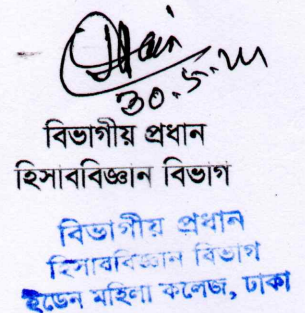 30.5.21
বিভাগীয় প্রধান
হিসাববিজ্ঞান বিভাগ
বিভাগীয় প্রধান
হিসাববিজ্ঞান বিভাগ
ইডেন মহিলা কলেজ, ঢাকা